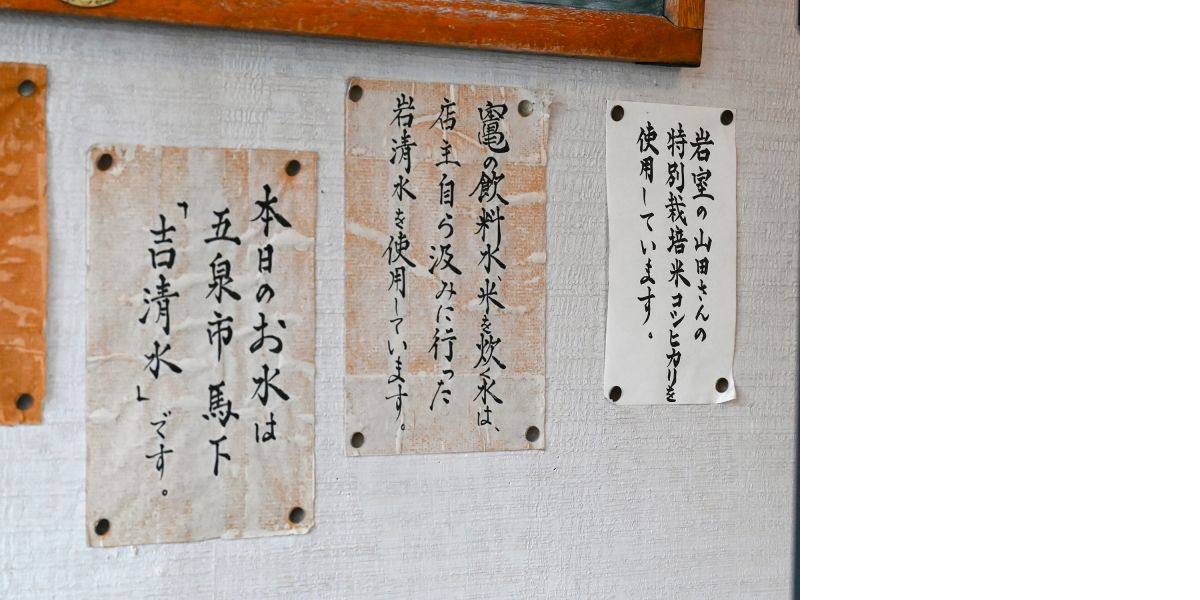 岩室の山田さんの
特別栽培米コシヒカリを
使用しています。
竈の飲料水、米を炊く水は、
店主自ら汲みに行った
岩清水を使用しています。
本日のお水は
五泉市馬下
「吉清水」です。